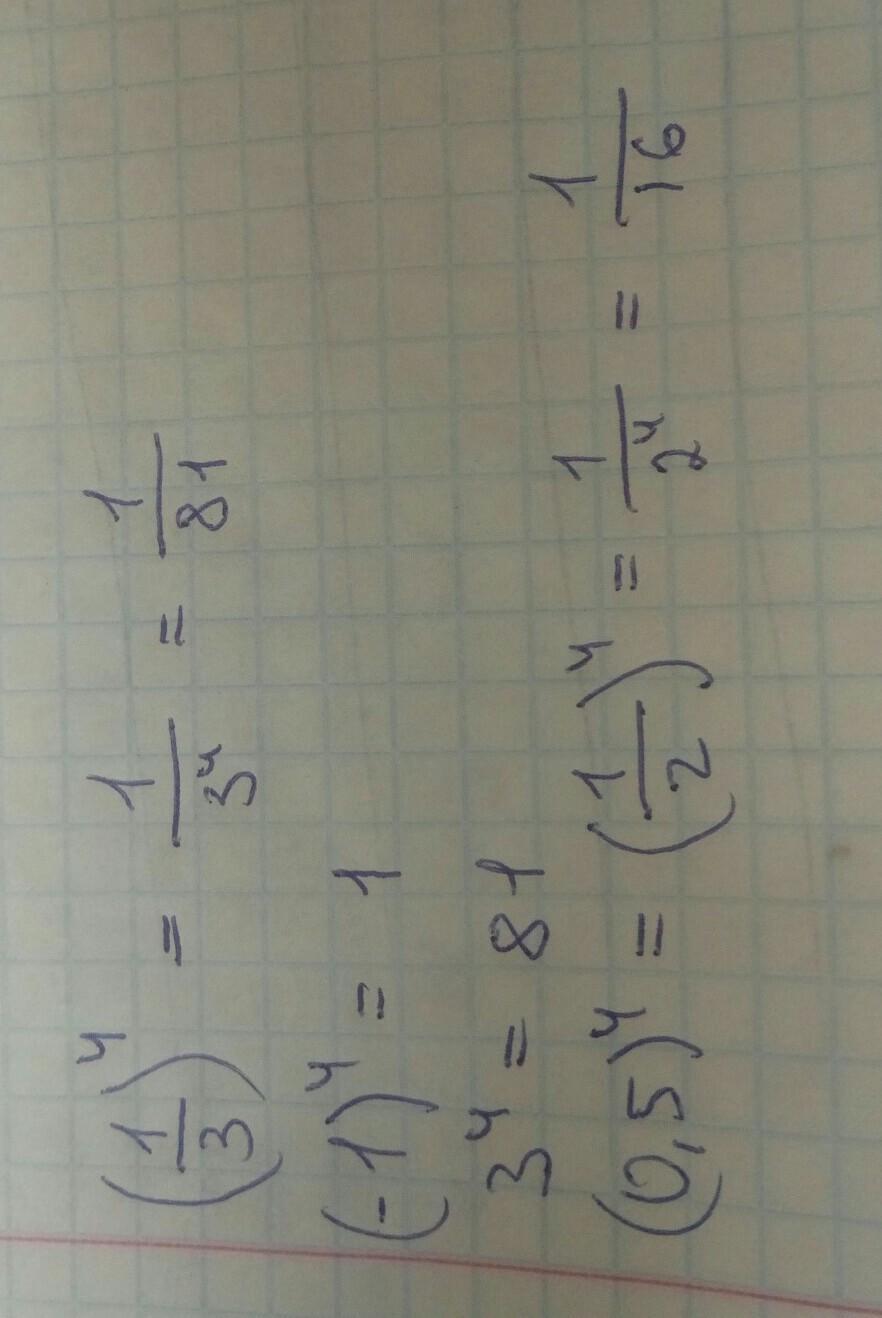 (1/3)⁴ = 1/3⁴ = 1/81
(-1)⁴ = 1
3⁴ = 81
(0,5)⁴ = (1/2)⁴ = 1/2⁴ = 1/16